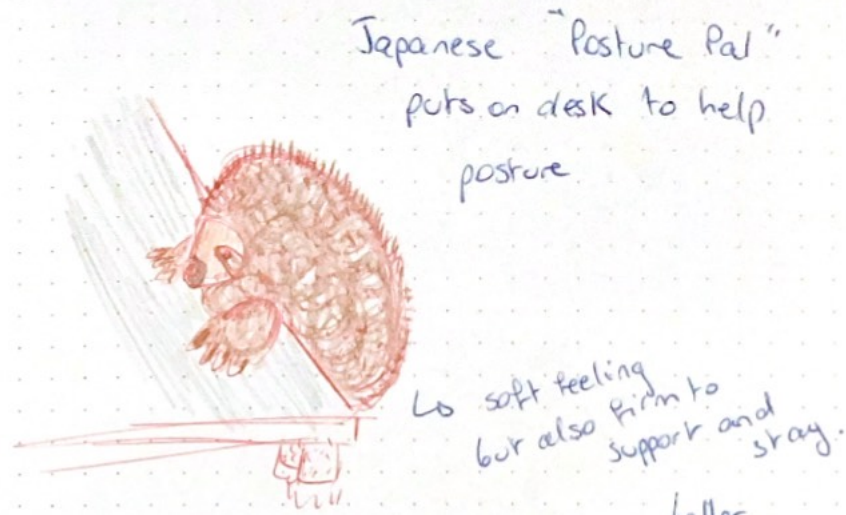 Japanese "Posture Pal"
puts on desk to help
posture
↳ soft feeling
but also firm to
support and
stay.